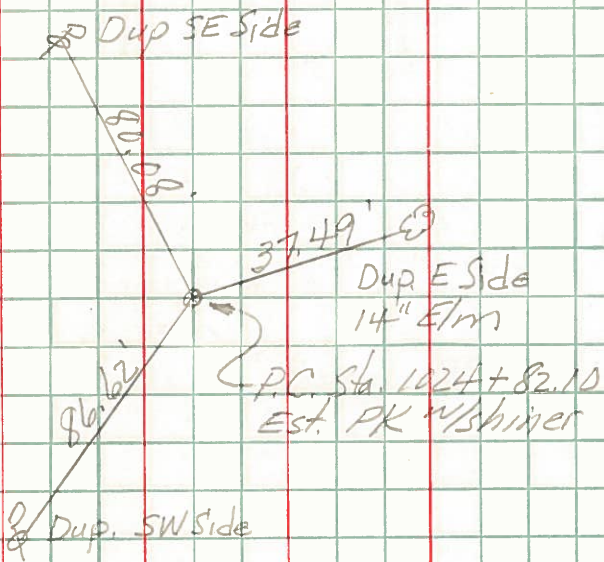 Dup SE Side
80.08'
37.49'
Dup. E Side
14" Elm
86.62'
P.C. Sta. 1024+82.10
Est. PK w/shiner
Dup. SW Side